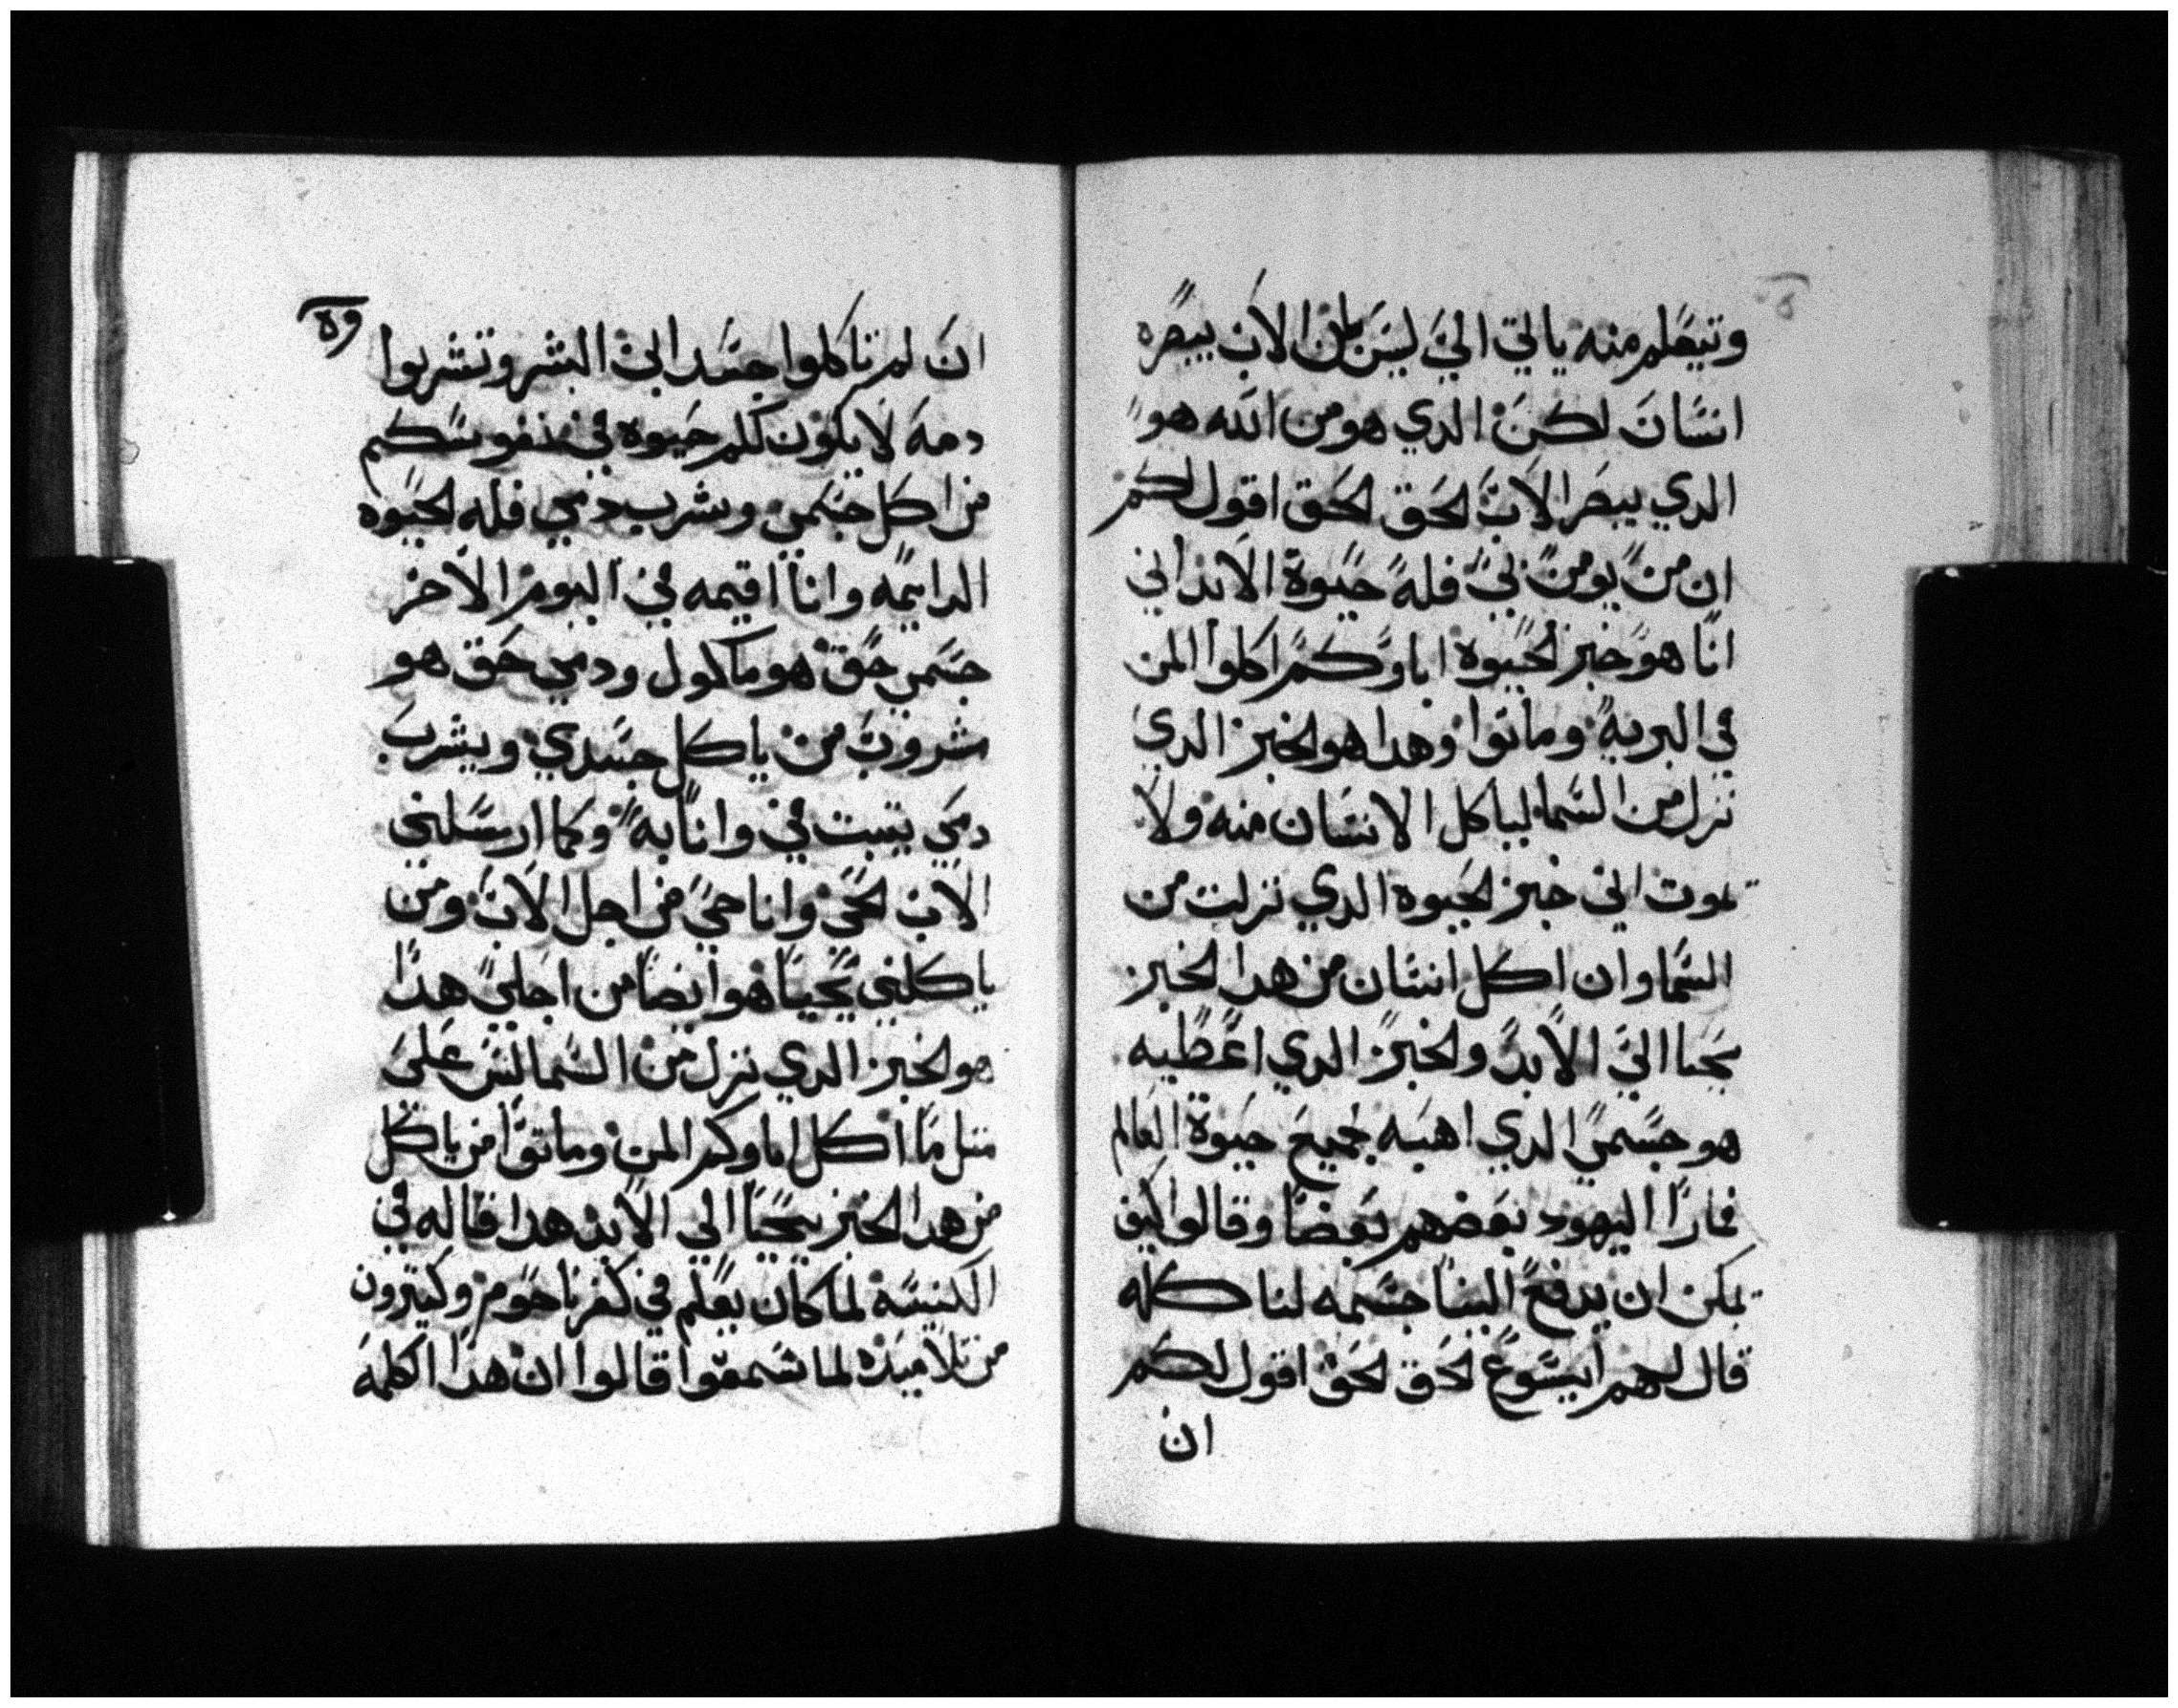 وتيعلم منه ياتي الي ليس بان الاب يبصره
انسان لكن الدي هو من الله هو
الدي يبصر الاب الحق الحق اقول لكم
ان من يومن بي فله حيوة الابد اني
انا هو خبز الحيوه اباوكم اكلوا المن
في البريه وماتوا وهدا هو الخبز الدي
نزل من السما لياكل الانسان منه ولا
يموت اني خبز الحيوه الدي نزلت من
السما وان اكل انسان من هدا الخبز
يحيا الي الابد والخبز الدي اعطيه
هو جسمي الدي اهبه لجميع حيوة العالم
فمارا اليهود بعضهم بعضا وقالوا كيف
يمكن ان يدفع الينا جسمه لنا كله
قال لهم ايسوع الحق الحق اقول لكم
ان
ان لم تاكلوا جسد ابن البشر وتشربوا
دمه لا يكون لكم حيوه في نفوسكم
من اكل جسمي وشرب دمي فله الحيوه
الدايمه وانا اقيمه في اليوم الاخر
جسمي حق هو ماكول ودمي حق هو
مشروب من ياكل جسدي ويشرب
دمي يتبت في وانا به وكما ارسلني
الاب الحي وانا حي من اجل الاب ومن
ياكلني يحيا هو ايضا من اجلي هدا
هو الخبز الدي نزل من السما ليس علي
متل ما اكل اباوكم المن وماتوا من ياكل
من هدا الخبز يحيا الي الابد هدا قاله في
الكنيسه لما كان يعلم في كفرناحوم وكتيرون
من تلاميده لما سمعوا قالوا ان هدا الكلمه